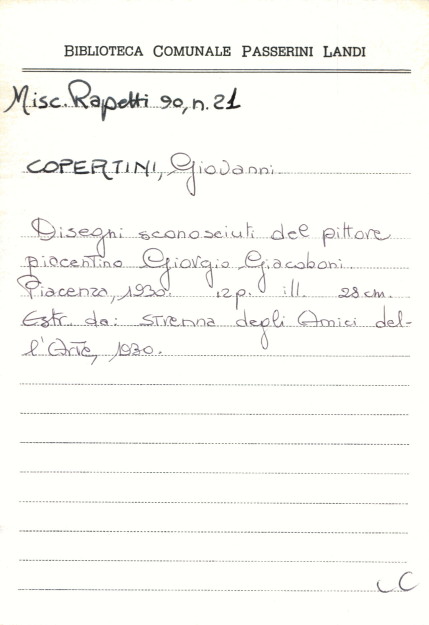 BIBLIOTECA COMUNALE PASSERINI LANDI
Misc. Rapetti 90, n. 21
COPERTINI, Giovanni
Disegni sconosciuti del pittore
piacentino Giorgio Giacoboni.
Piacenza, 1930. 12 p. ill. 28 cm.
Estr. da: Strenna degli Amici del-
l'Arte, 1930.